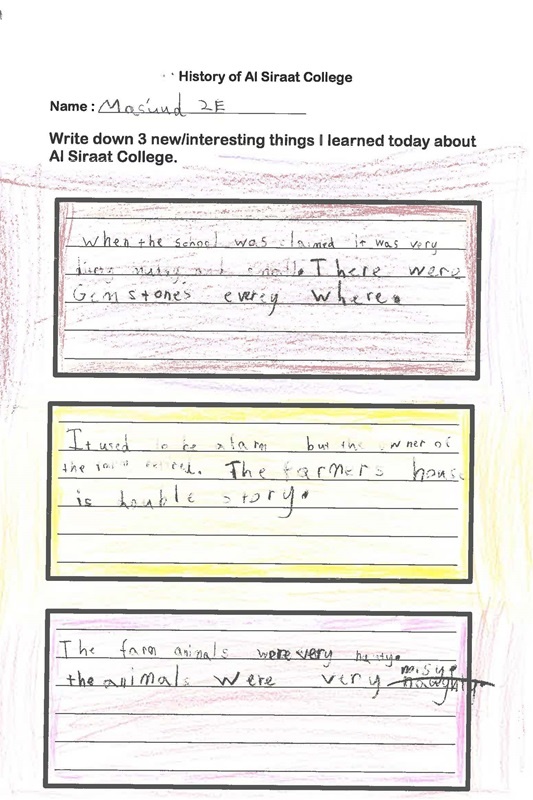 History of Al Siraat College
Name : Mas'uud 2E
Write down 3 new/interesting things I learned today about
Al Siraat College.
When the school was claimed it was very
and small. There were
Gemstones everey where.
It used to be a farm but the owner of
the farm retired. The farmers house
is bouble story.
The farm animals were very
the animals were very naughty